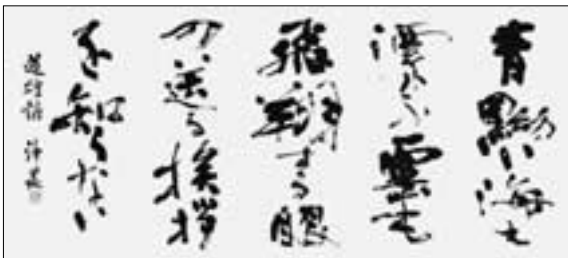 青黝い海も
漂ふ雲も
飛翔する眼
の送る挨拶
を知らない
詩